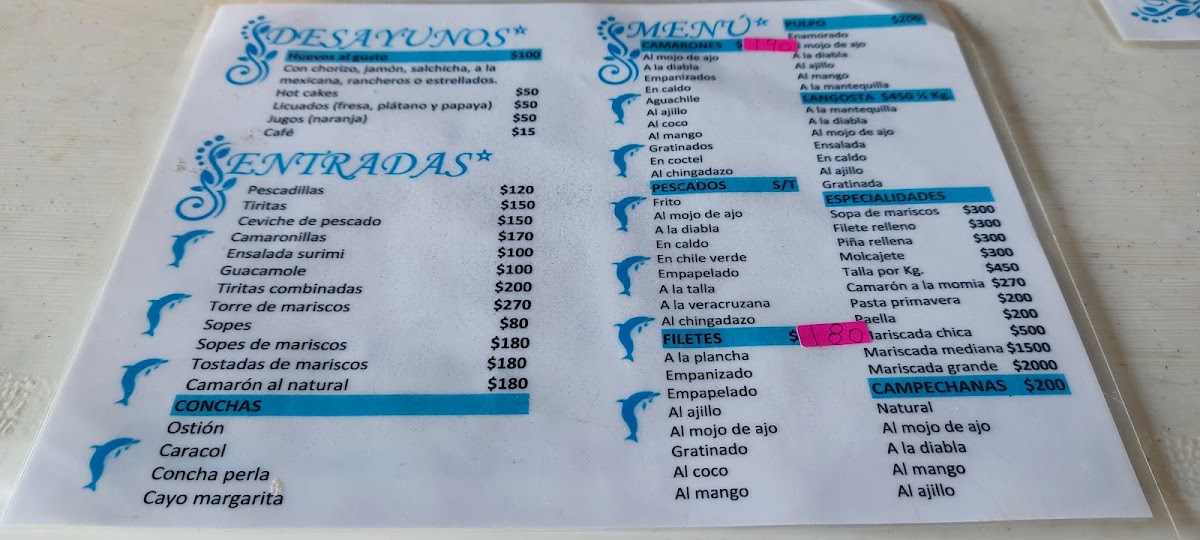 DESAYUNOS*
Huevos al gusto $100
Con chorizo, jamón, salchicha, a la
mexicana, rancheros o estrellados.
Hot cakes $50
Licuados (fresa, plátano y papaya) $50
Jugos (naranja) $50
Café $15
ENTRADAS*
Pescadillas $120
Tiritas $150
Ceviche de pescado $150
Camaronillas $170
Ensalada surimi $100
Guacamole $100
Tiritas combinadas $200
Torre de mariscos $270
Sopes $80
Sopes de mariscos $180
Tostadas de mariscos $180
Camarón al natural $180
CONCHAS
Ostión
Caracol
Concha perla
Cayo margarita
MENÚ*
CAMARONES $ 190
Al mojo de ajo
A la diabla
Empanizados
En caldo
Aguachile
Al ajillo
Al coco
Al mango
Gratinados
En coctel
Al chingadazo
PESCADOS S/T
Frito
Al mojo de ajo
A la diabla
En caldo
En chile verde
Empapelado
A la talla
A la veracruzana
Al chingadazo
FILETES $ 180
A la plancha
Empanizado
Empapelado
Al ajillo
Al mojo de ajo
Gratinado
Al coco
Al mango
PULPO $200
Enamorado
Al mojo de ajo
A la diabla
Al ajillo
Al mango
A la mantequilla
LANGOSTA $450 ½ Kg.
A la mantequilla
A la diabla
Al mojo de ajo
Ensalada
En caldo
Al ajillo
Gratinada
ESPECIALIDADES
Sopa de mariscos $300
Filete relleno $300
Piña rellena $300
Molcajete $300
Talla por Kg. $450
Camarón a la momia $270
Pasta primavera $200
Paella $200
Mariscada chica $500
Mariscada mediana $1500
Mariscada grande $2000
CAMPECHANAS $200
Natural
Al mojo de ajo
A la diabla
Al mango
Al ajillo